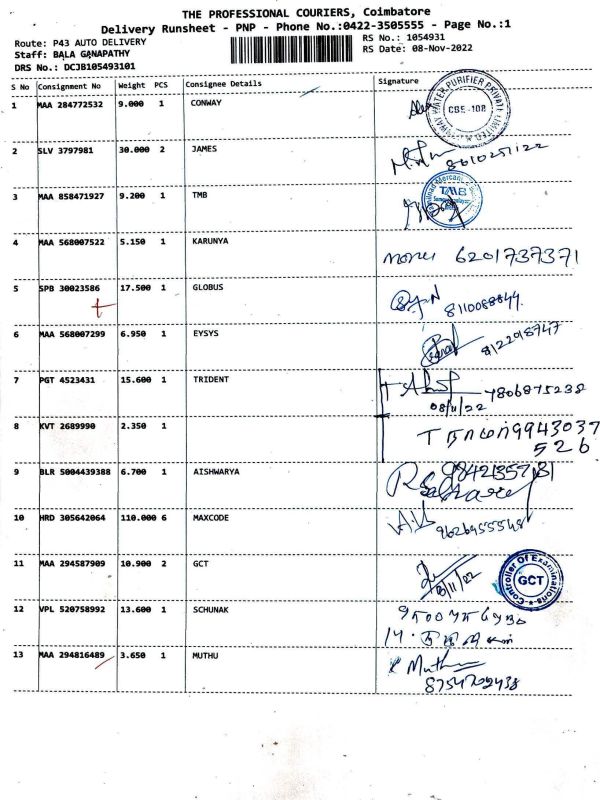 THE PROFESSIONAL COURIERS, Coimbatore
Delivery Runsheet - PNP - Phone No.:0422-3505555 - Page No.:1
Route: P43 AUTO DELIVERY
RS No.: 1054931
Staff: BALA GANAPATHY
RS Date: 08-Nov-2022
DRS No.: DCJB105493101
S No Consignment No Weight PCS Consignee Details Signature
1 MAA 284772532 9.000 1 CONWAY
WATER PURIFIER PRIVATE LIMITED
CBE-108
2 SLV 3797981 30.000 2 JAMES
3 MAA 858471927 9.200 1 TMB
TMB
4 MAA 568007522 5.150 1 KARUNYA
6201737371
5 SPB 30023586 17.500 1 GLOBUS
6 MAA 568007299 6.950 1 EYSYS
8122918747
7 PGT 4523431 15.600 1 TRIDENT
7806875238
08/11/22
8 KVT 2689990 2.350 1
9943037
526
9 BLR 5004439388 6.700 1 AISHWARYA
10 HRD 305642064 110.000 6 MAXCODE
11 MAA 294587909 10.900 2 GCT
Controller Of Examinations
GCT
12 VPL 520758992 13.600 1 SCHUNAK
13 MAA 294816489 3.650 1 MUTHU
Muthu